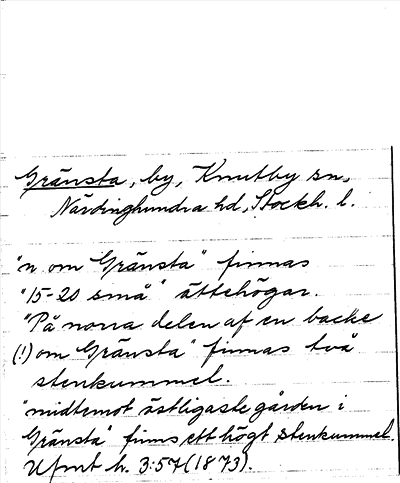 Gränsta, by, Knutby sn,
Närdinghundra hd, Stockh. l.
"n om Gränsta" finnas
"15-20 små" ättehögar.
"På norra delen af en backe
(!) om Gränsta" finnas två
stenkummel.
"midtemot östligaste gården i
Gränsta" finns ett högt stenkummel.
Ufmt h. 3:57 (1873).